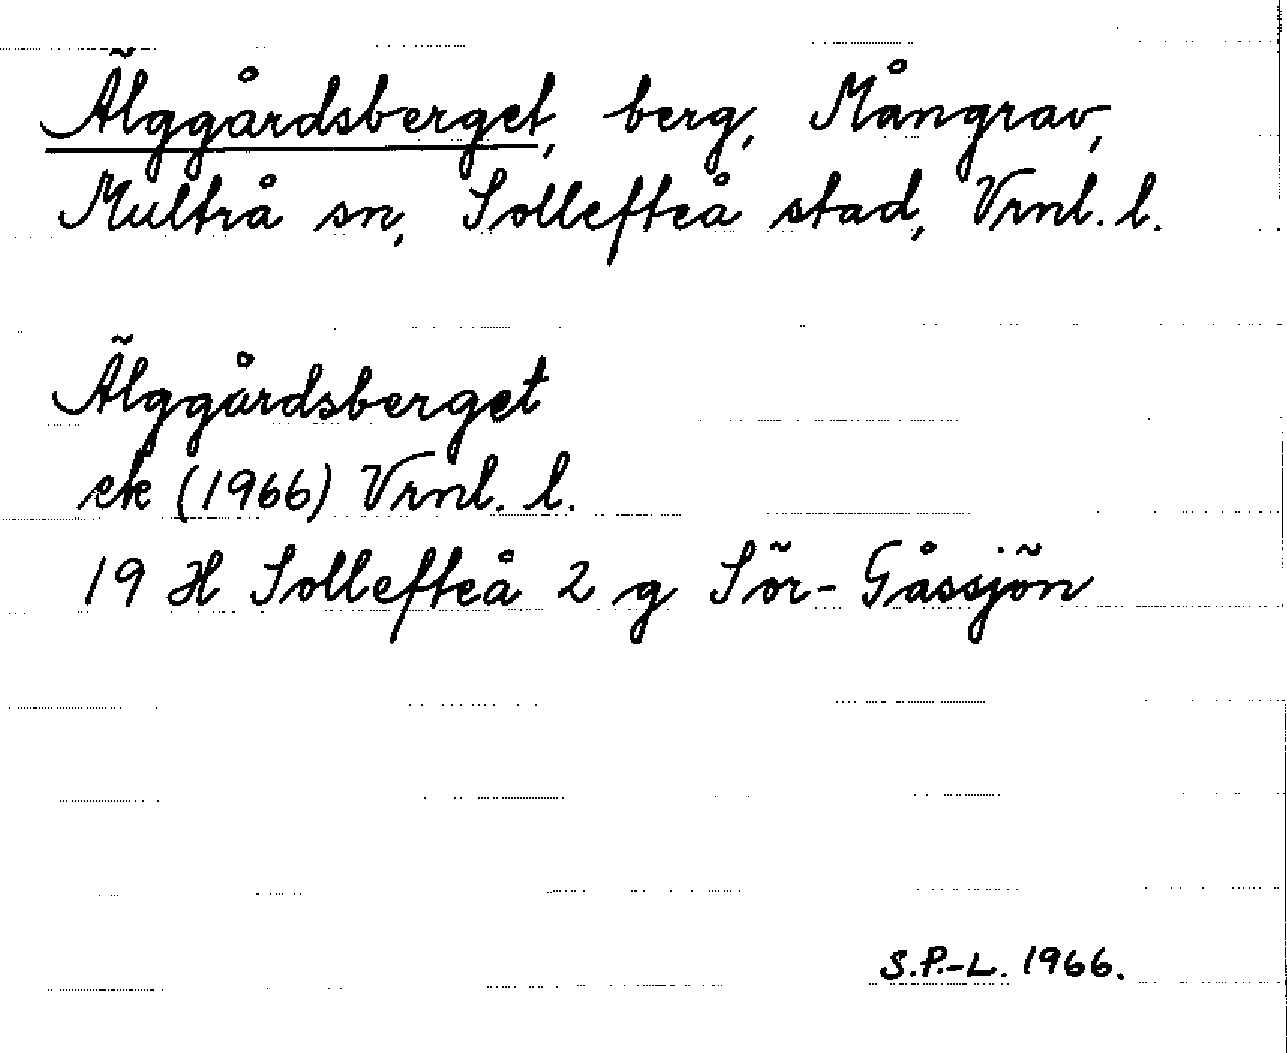 Älggårdsberget, berg, Mångrav,
Multrå sn, Sollefteå stad, Vrnl. l.
Älggårdsberget
ek (1966) Vrnl. l.
19 H Sollefteå 2 g Sör-Gåssjön
S.P.-L. 1966.